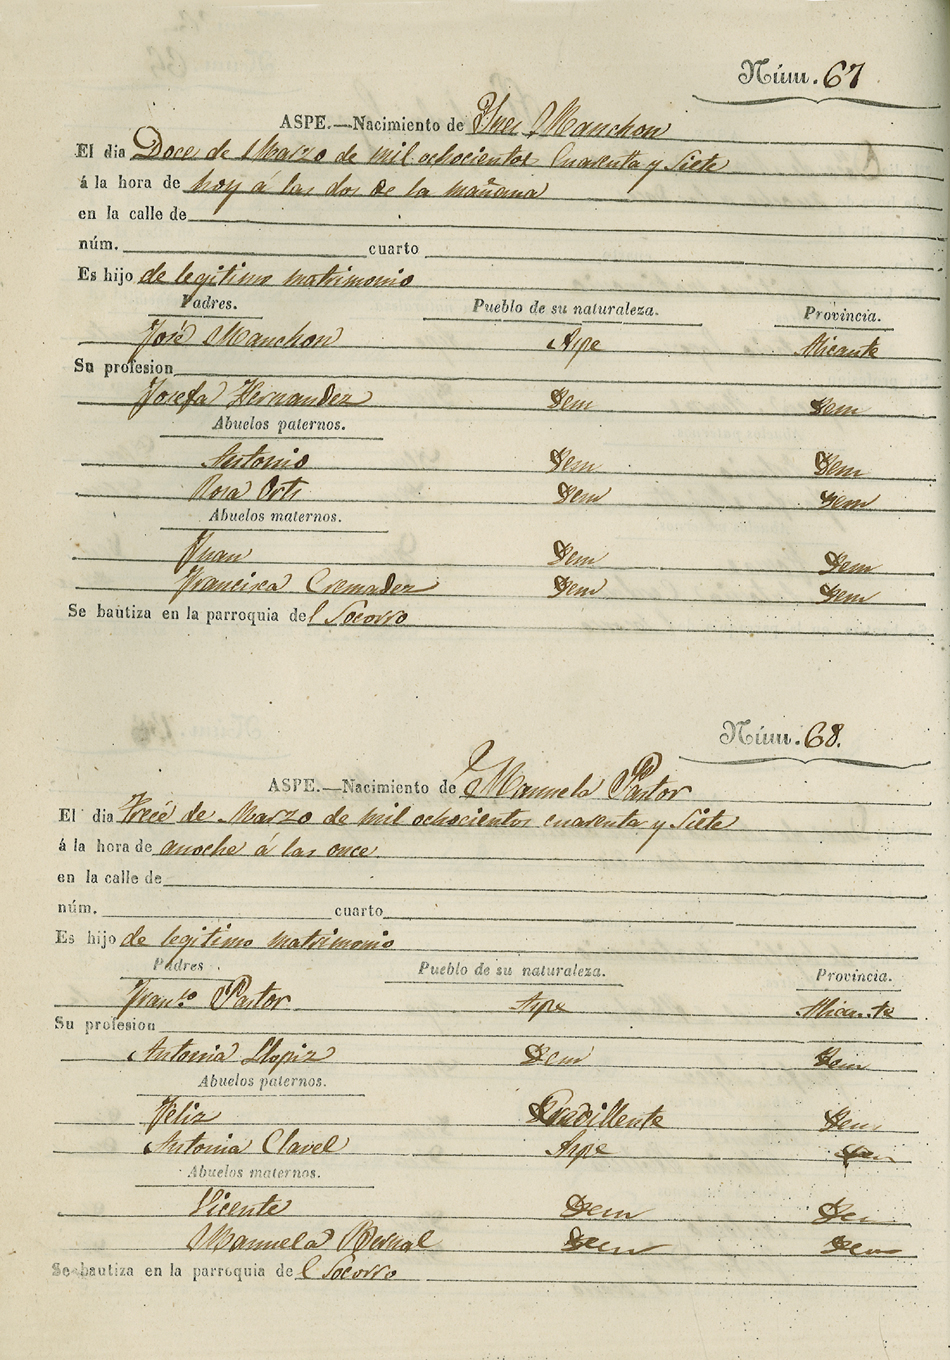 Núm. 67
ASPE.—Nacimiento de Ines Manchon
El dia Doce de Marzo de mil ochocientos Cuarenta y Siete
á la hora de hoy á las dos de la mañana
en la calle de
núm. cuarto
Es hijo de legitimo matrimonio
Padres. Pueblo de su naturaleza. Provincia.
José Manchon Aspe Alicante
Su profesion
Josefa Hernandez Idem Idem
Abuelos paternos.
Antonio Idem Idem
Rosa Orts Idem Idem
Abuelos maternos.
Juan Idem Idem
Francisca Cremadez Idem Idem
Se bautiza en la parroquia del Socorro
Núm. 68.
ASPE.—Nacimiento de Manuela Pastor
El dia Trece de Marzo de mil ochocientos cuarenta y Siete
á la hora de anoche á las once
en la calle de
núm. cuarto
Es hijo de legitimo matrimonio
Padres. Pueblo de su naturaleza. Provincia.
Fran.co Pastor Aspe Alicante
Su profesion
Antonia Llopiz Idem Idem
Abuelos paternos.
Feliz Idem
Antonia Clavel Aspe Idem
Abuelos maternos.
Vicente Idem Idem
Manuela Bernal Idem Idem
Se bautiza en la parroquia del Socorro